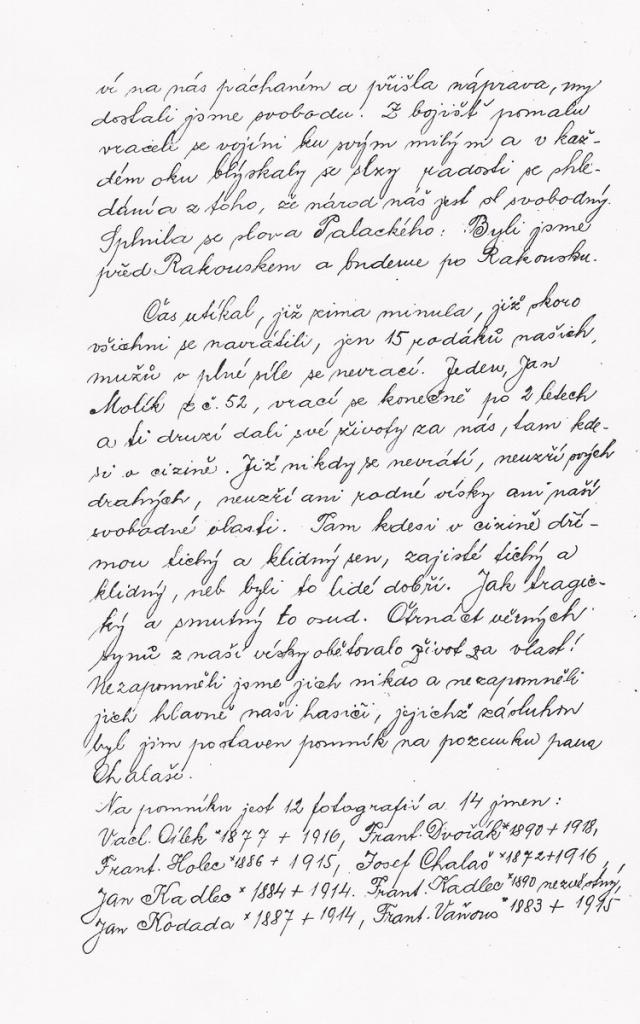 ví na nás páchaném a přišla náprava, my
dostali jsme svobodu. Z bojišť pomalu
vraceli se vojíni ku svým milým a v kaž-
dém oku blýskaly se slzy radosti se shle-
dání a z toho, že národ náš jest svobodný.
Splnila se slova Palackého: Byli jsme
před Rakouskem a budeme po Rakousku.
Čas utíkal, již zima minula, již skoro
všichni se navrátili, jen 15 rodáků našich,
mužů v plné síle se nevrací. Jeden, Jan
Molík z č. 52, vrací se konečně po 2 letech
a ti druzí dali své životy za nás, tam kde-
si v cizině. Již nikdy se nevrátí, neuzří svých
drahých, neuzří ani rodné vísky ani naší
svobodné vlasti. Tam kdesi v cizině dří-
mou tichý a klidný sen, zajisté tichý a
klidný, neb byli to lidé dobří. Jak tragic-
ký a smutný to osud. Čtrnáct věrných
synů z naší vísky obětovalo život za vlast!
Nezapomněli jsme jich nikdo a nezapomněli
jich hlavně naši hasiči, jejichž zásluhou
byl jim postaven pomník na pozemku pana
Chalaši.
Na pomníku jest 12 fotografií a 14 jmen:
Václ. Cílek *1877 + 1916, Frant. Dvořák *1890 + 1918,
Frant. Holec *1886 + 1915, Josef Chalaš *1872 + 1916,
Jan Kadlec * 1884 + 1914. Frant. Kadlec *1890 nezvěstný,
Jan Kodada * 1887 + 1914, Frant. Vaňous *1883 + 1915